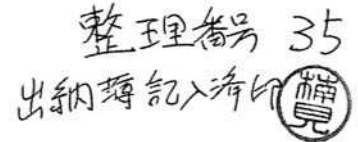 整理番号 35
出納簿記入済印 楠見